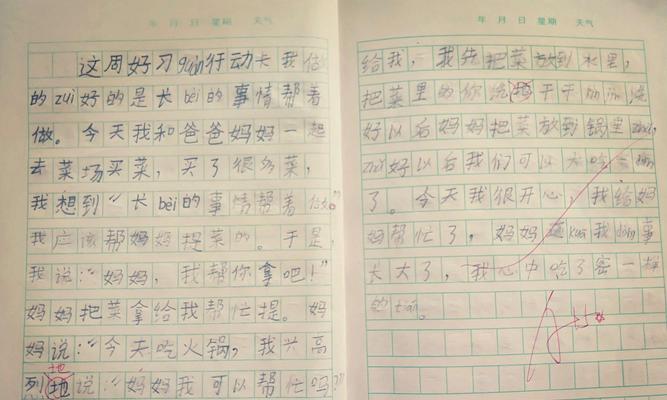 年 月 日 星期 天气
这周好习guàn行动卡我做
的zuì好的是长bèi的事情帮着
做。今天我和爸爸妈妈一起
去菜场买菜，买了很多菜，
我想到“长bèi的事情帮着做。”
我应该帮妈妈提菜的。于是，
我说：“妈妈，我帮你拿吧！”
妈妈把菜拿给我帮忙提。妈
妈说：“今天吃火锅，我兴高
地
列地说：“妈妈我可以帮忙吗？”
年 月 日 星期 天气
给我，我先把菜放到水里，
把菜里的你给干干
好以后妈妈把菜放到锅里zhǔ，
zhǔ好以后我们可以
了。今天我很开心，我给妈
妈帮忙了，妈妈kuā我dǒng事
长大了，我心中吃了密一样
的tián。